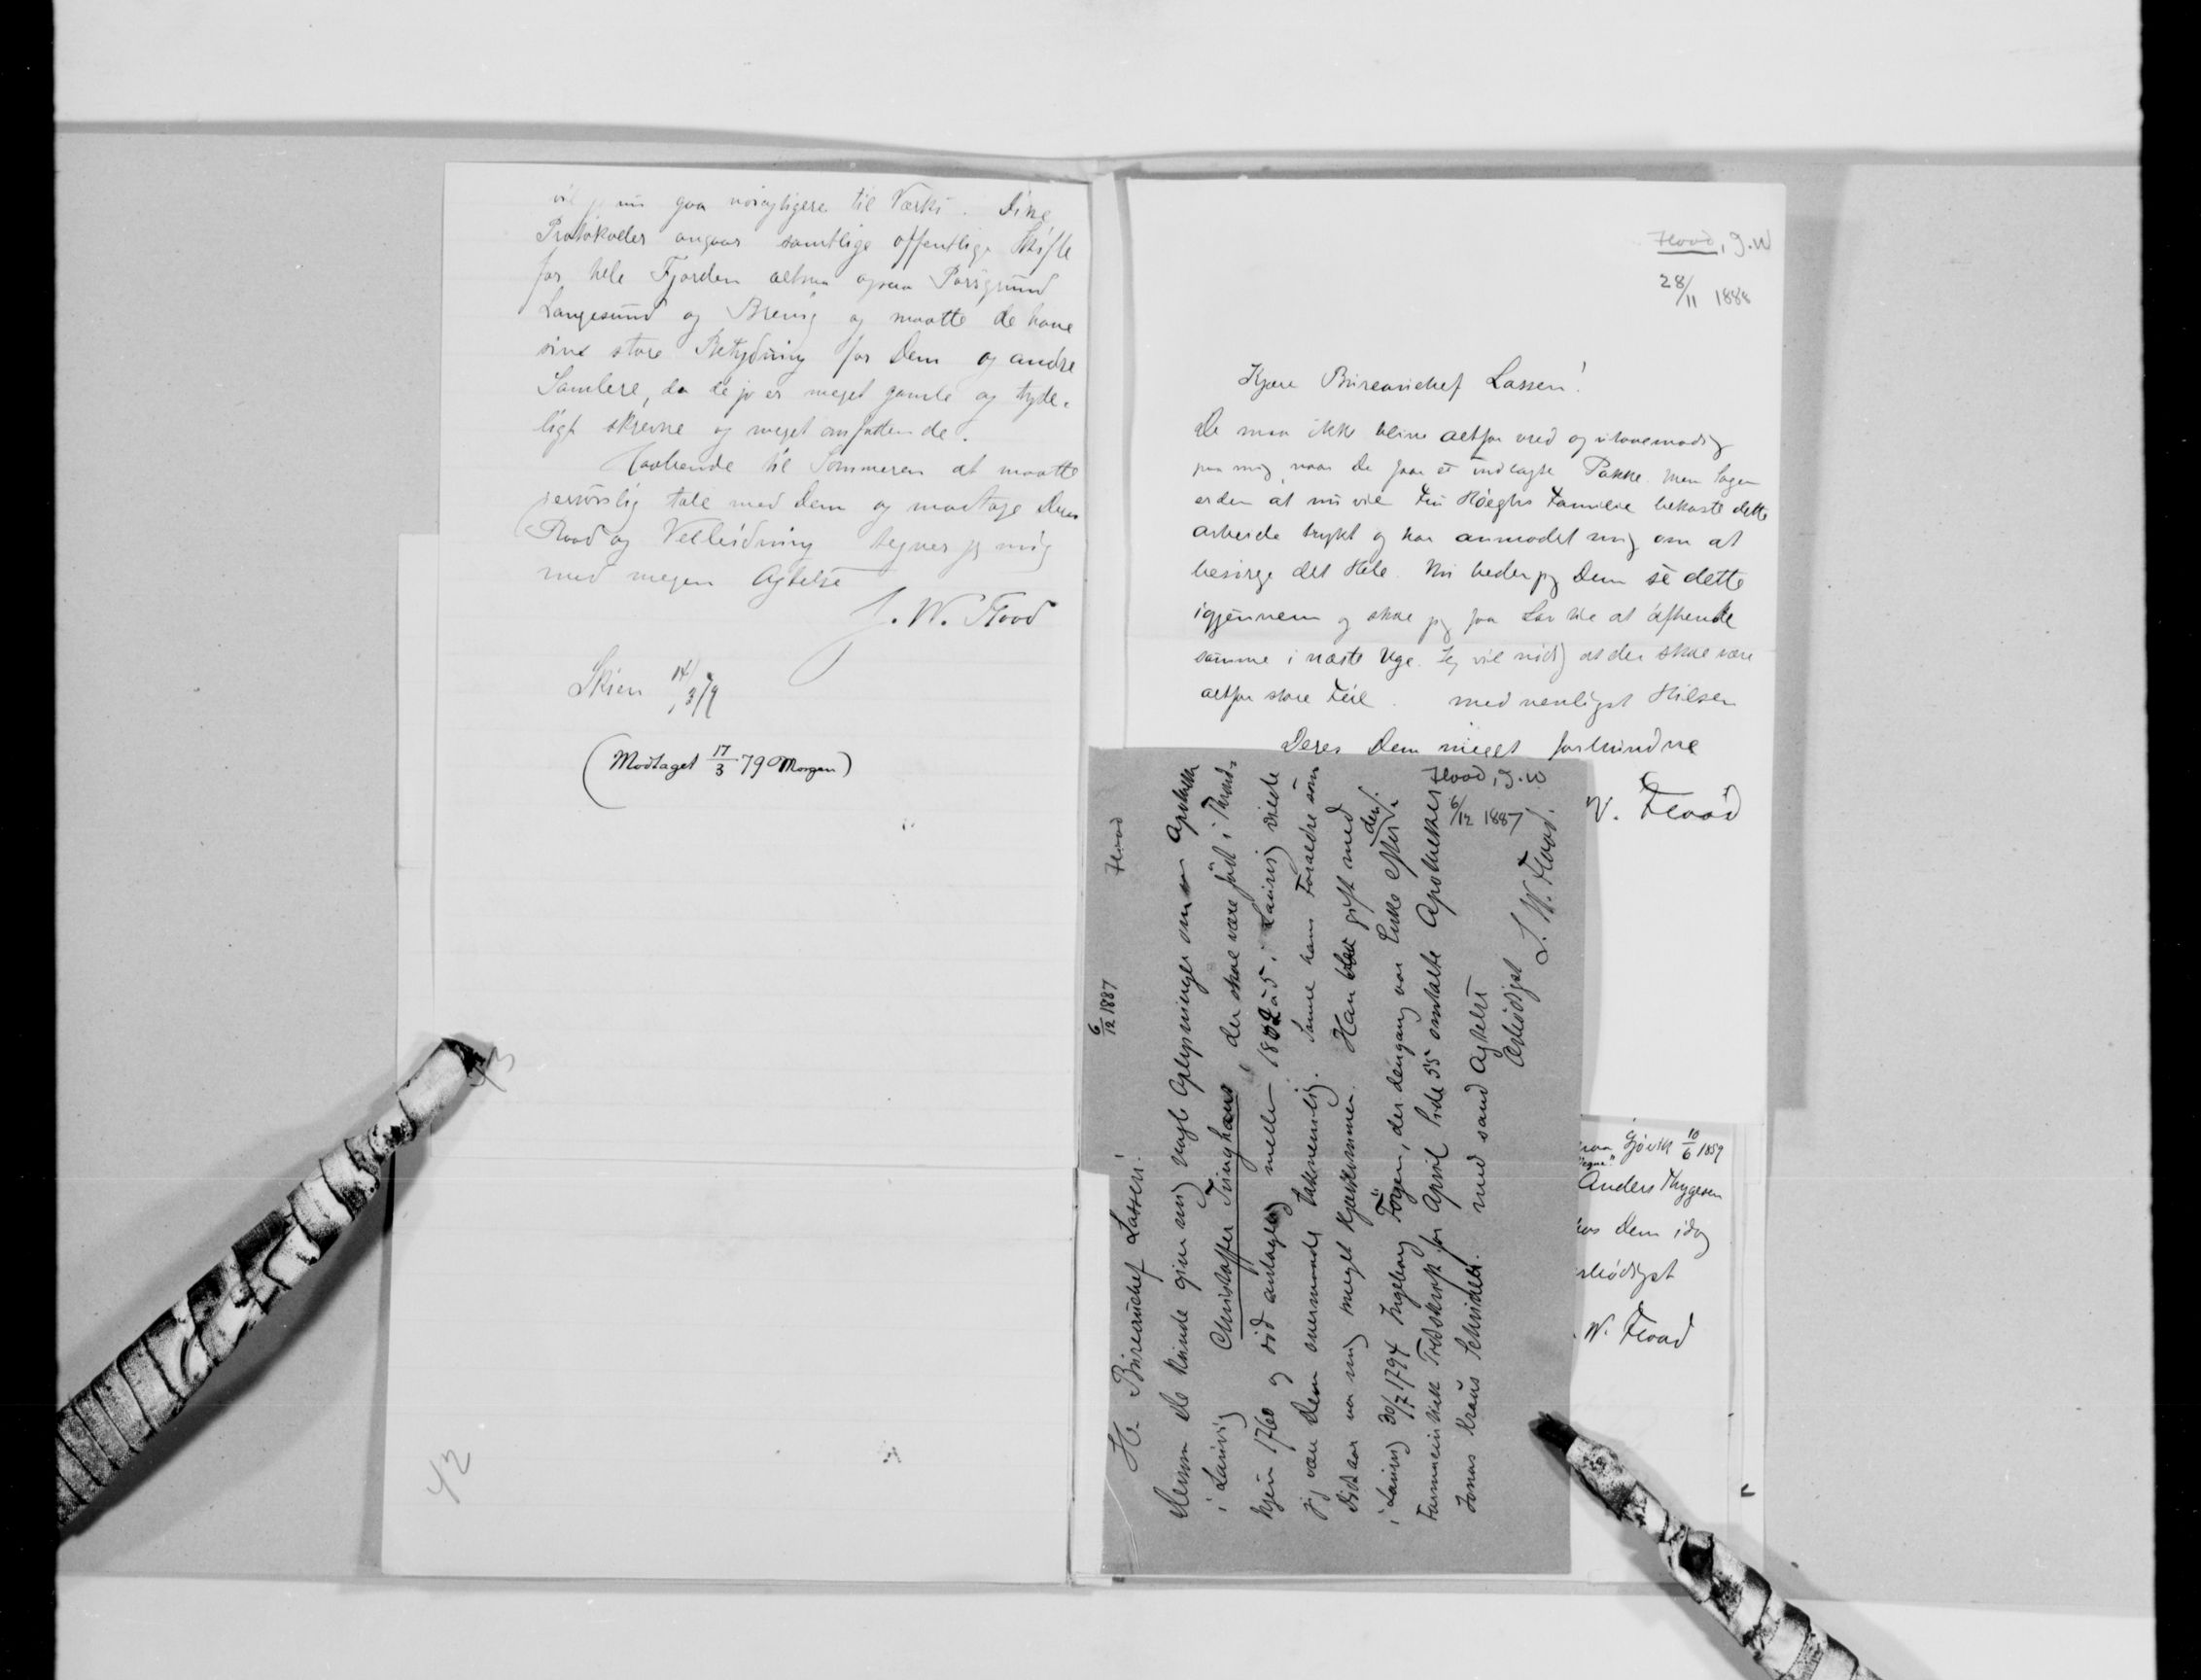 vil jeg nu gaa nøiagtigere til Værks. Disse
Protokoller angaar samtlige offentlige Skifte
for hele Fjorden altsaa ogsaa Porsgrund
Langesund og Brevig og maatte de have
sin store Betydning for Dem og andre
Samlere, da de jo er meget gamle og tyde-
ligt skrevne og meget omfattende.
Haabende til Sommeren at maatte
personlig tale med Dem og modtage Deres
Raad og Veileidning tegner jeg mig
med megen Agtelse
J. W. Flood
Skien 14/3 79
(Modtaget 17/3 79 Morgen)
43
42
Flood, J.W
28/11 1888
Kjære Bureauchef Lassen!
De maa ikke blive altfor vred og utaalmodig
paa mig, naar De faar et indlagte Pakke. Men Sagen
er den at nu vil Fru Høeghs Familie bekoste dette
arbeide trykt og har anmodet mig om at
besørge det Hele. Nu beder jeg Dem se dette
igjennem og skal jeg faa Lov til at afhente
samme i næste Uge. Jeg vil nødig at der skal være
altfor store Feil. med venligst Hilsen
Deres Dem meget forbundne
W. Flood
Flood, J.W
6/12 1887
6/12 1887 Flood
Hr. Bureauchef Lassen!
Mon De kunde give mig nogle Oplysninger om en Apotheker
i Laurvig Christoffer Tvinghaus der skal være født i Thrond-
hjem 1760 og død antagelig mellem 1802 à 5 i Laurvig vilde
jeg være Dem overmaade taknemlig. Samme hans Forældre som
Didaar var mig meget kjærkommen. Han gift med
i Laurvig 30/7 1794 Ingeborg Føyen, der dengang var Enke efter den i
Farmaceutisk Tidsskrift for April Side 55 omtalte Apotheker
Jonas Kraus Schrider. med sand Agtelse
Ærbødigst
J. W. Flood.
paa Gjøvik 10/6 1859
Anders Thygesen
hos Dem idag
Ærbødigst
W. Flood